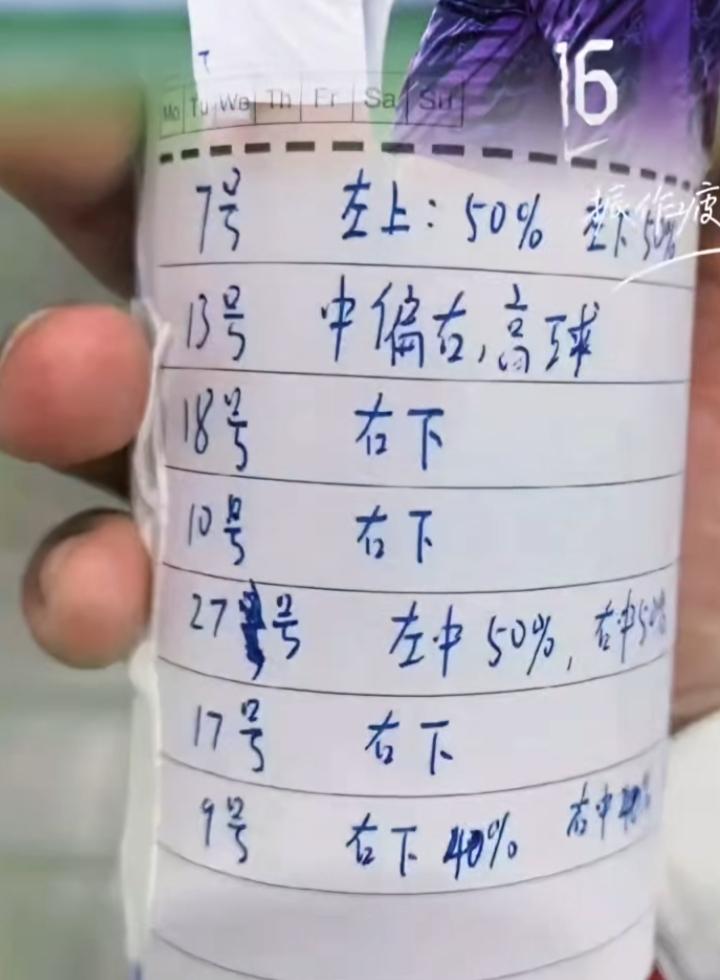 16
Mo Tu We Th Fr Sa Su
7号 左上：50% 左下50%
13号 中偏右，高球
18号 右下
10号 右下
27号 左中50%，右中50%
17号 右下
9号 右下40% 右中40%